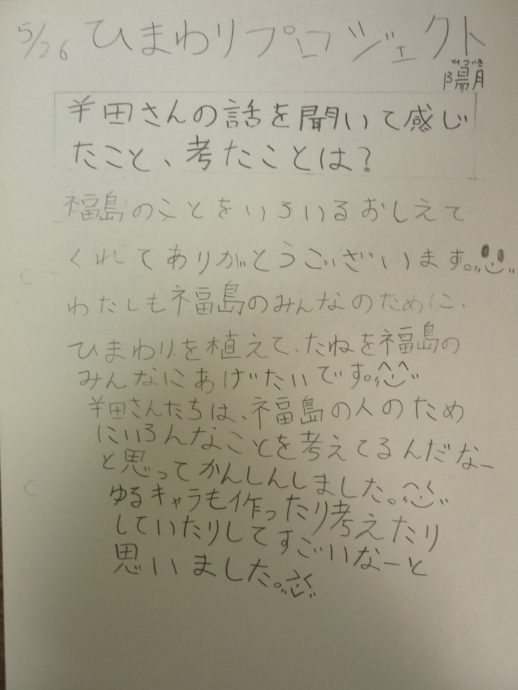 5/26 ひまわりプロジェクト
陽月
半田さんの話を聞いて感じ
たこと、考たことは?
福島のことをいろいろおしえて
くれてありがとうございます。
わたしも福島のみんなのために、
ひまわりを植えて、たねを福島の
みんなにあげたいです。
半田さんたちは、福島の人のため
にいろんなことを考えてるんだなー
と思ってかんしんしました。
ゆるキャラも作ったり考えたり
していたりしてすごいなーと
思いました。